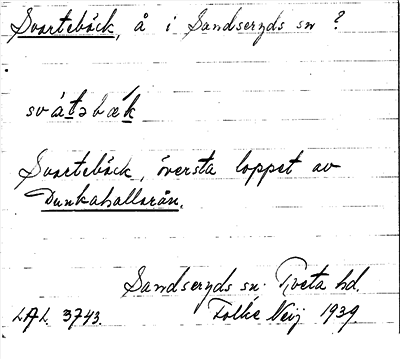 Svartebäck, å i Sandseryds sn ?
svátəbæ´k
Svartebäck, översta loppet av
Dunkahallaån.
Sandseryds sn. Tveta hd.
LAL. 3743. Folke Neij 1939.